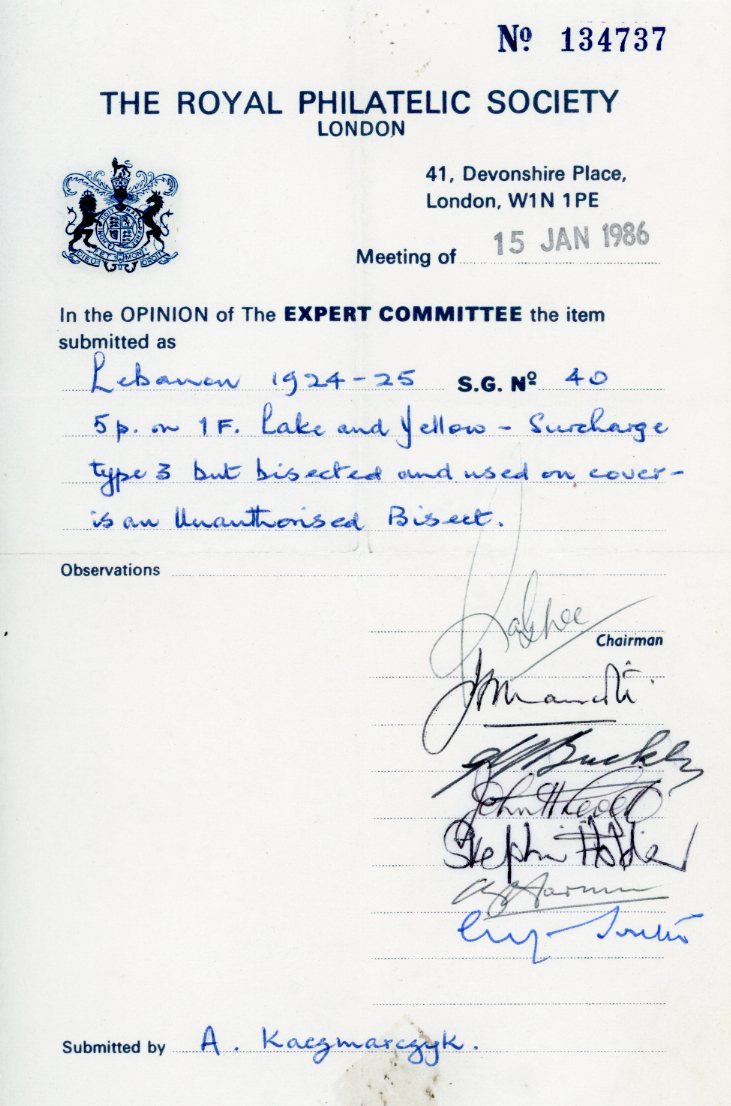 Nº 134737
THE ROYAL PHILATELIC SOCIETY
LONDON
41, Devonshire Place,
London, W1N 1PE
Meeting of 15 JAN 1986
In the OPINION of The EXPERT COMMITTEE the item
submitted as
Lebanon 1924-25 S.G. Nº 40
5p. on 1F. Lake and Yellow - Surcharge
type 3 but bisected and used on cover -
is an Unauthorised Bisect.
Observations
Chairman
Buckley
John H Levett
Stephen Holder
Submitted by A. Kaczmarczyk.